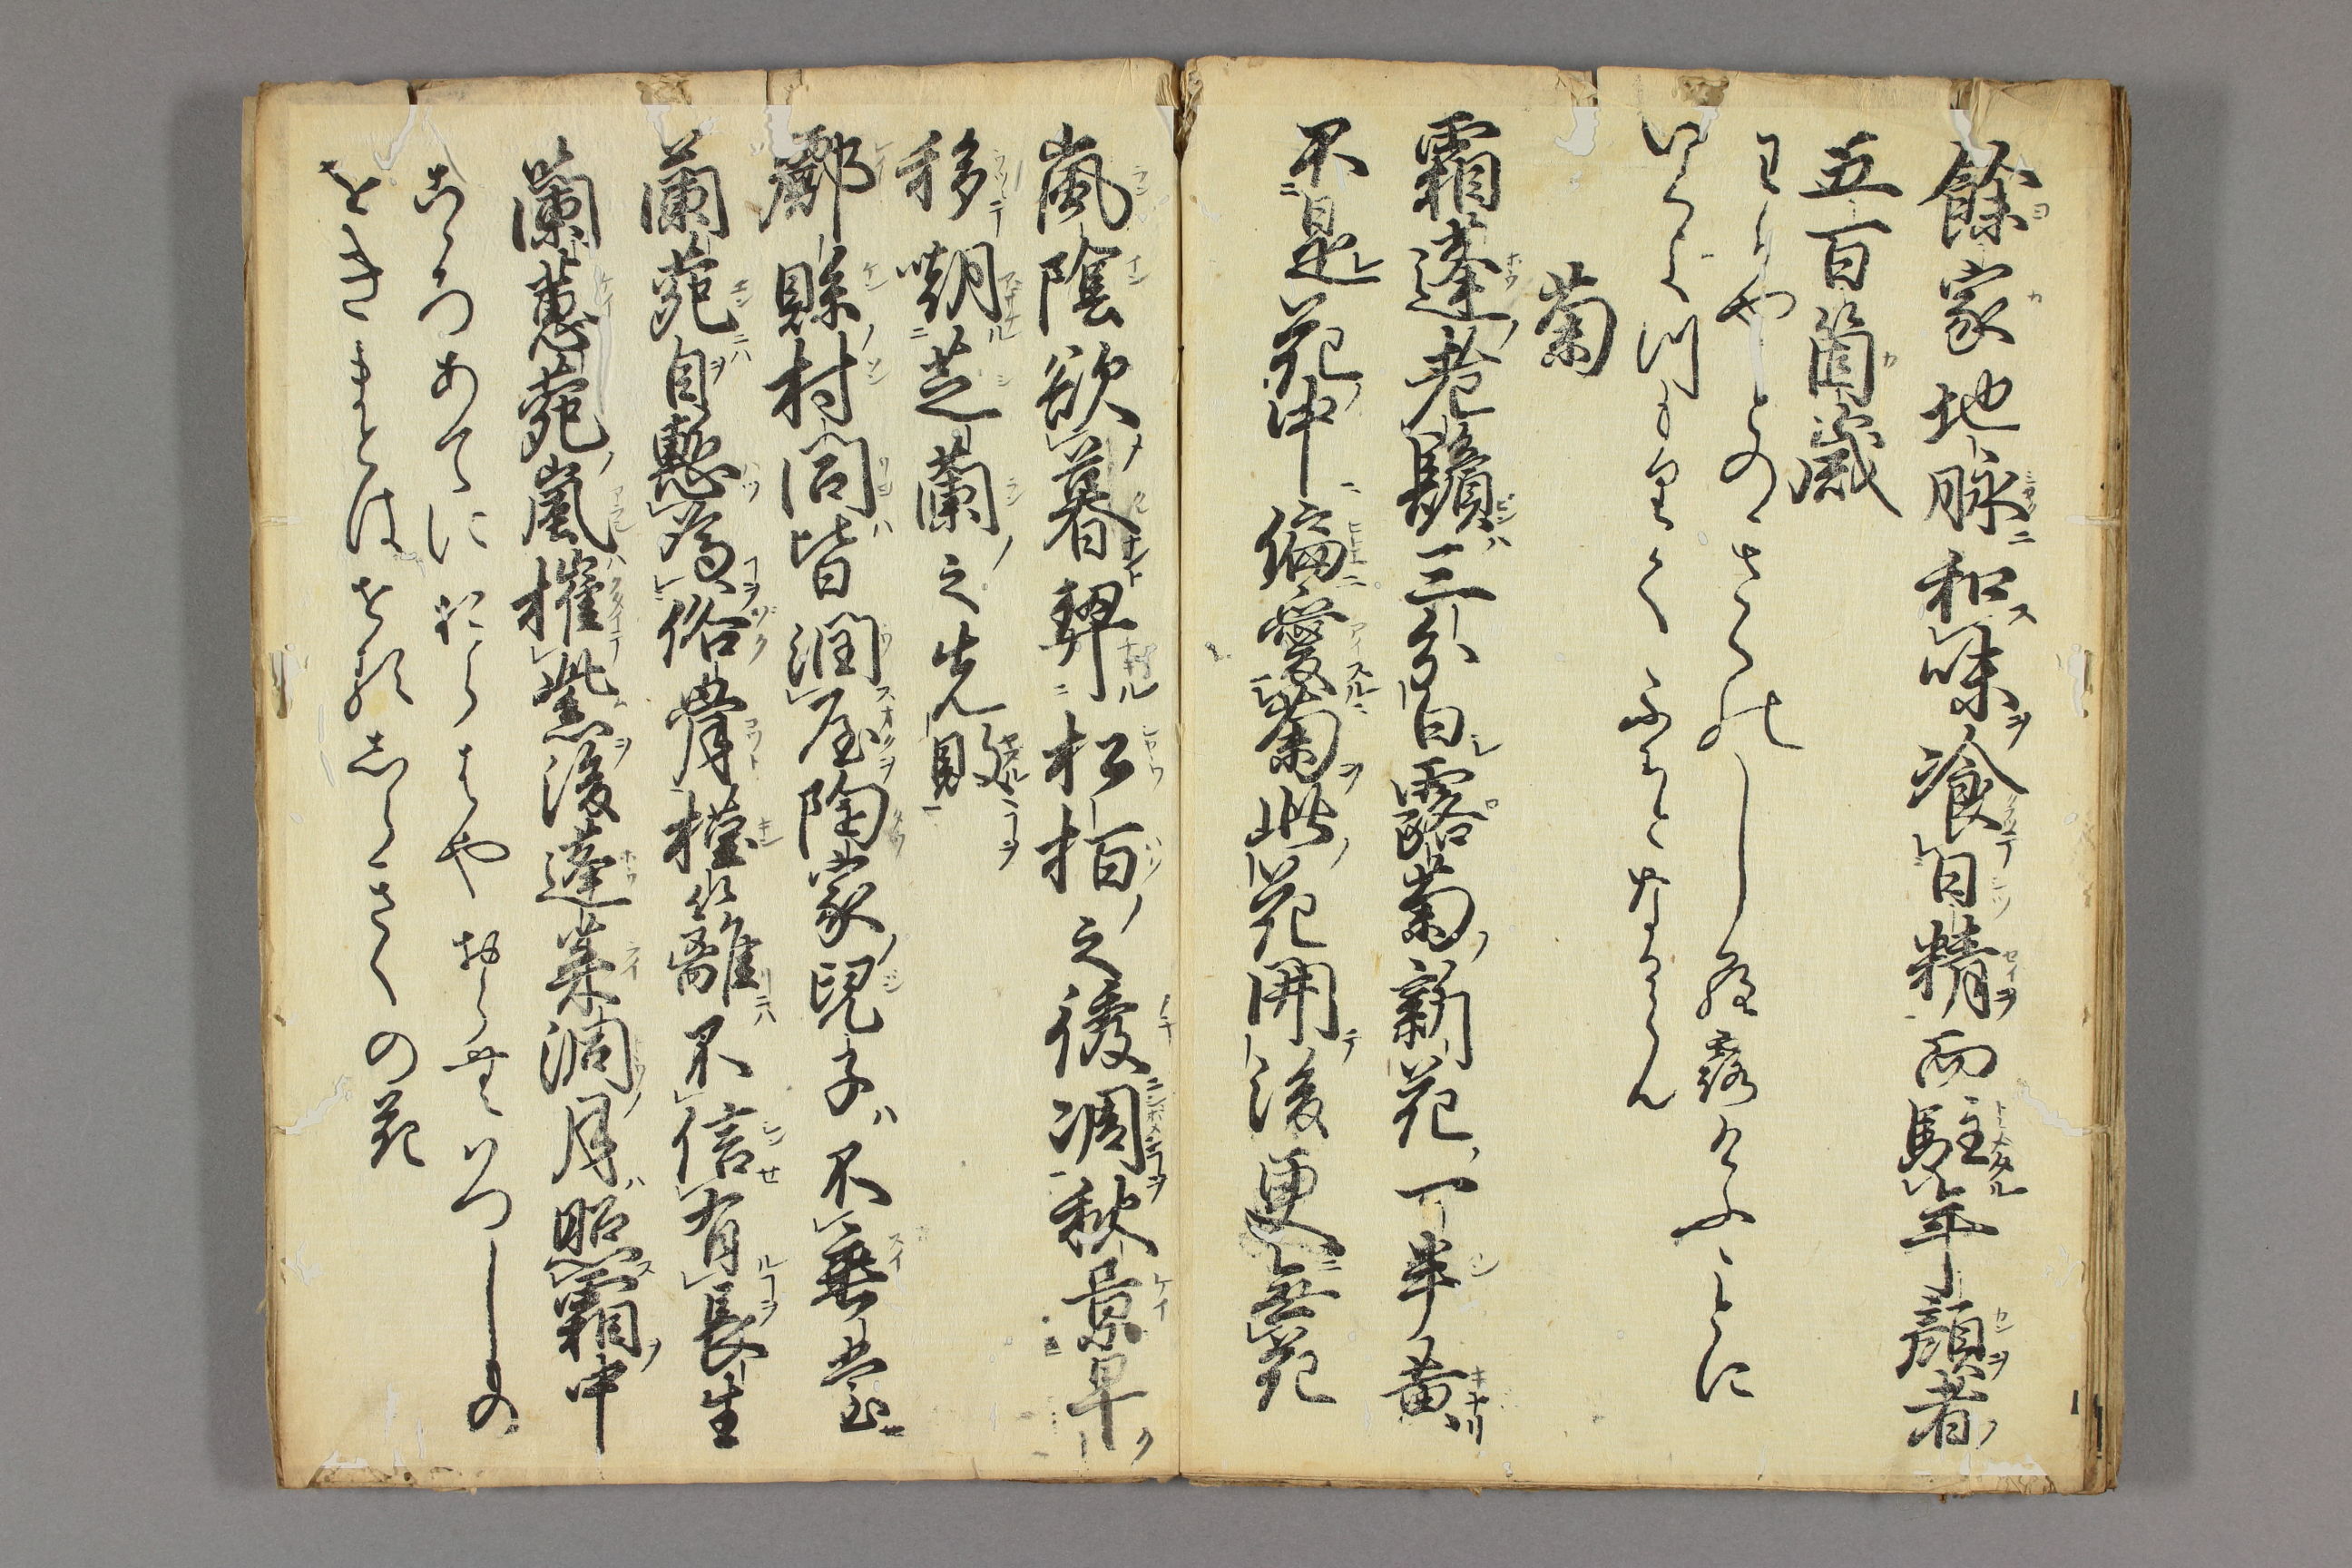 餘家地脉和味飡日精而駐年顔者
五百箇歳
わかやとのきくのしら露けふことに
いくよつもりてふちとなるらん
菊
霜蓬老鬢三分白露菊新花一半黄
不是花中偏愛菊此花開後更無花
嵐陰欲暮契松栢之後凋秋景早
移嘲芝蘭之先敗
酈縣村閭皆潤屋陶家兒子不垂堂
蘭苑自慙為俗骨槿籬不信有長生
蘭蕙苑嵐摧紫後蓬莱洞月照霜中
こゝろあてにおらはやおらむはつしもの
をきまとはせるしらきくの花